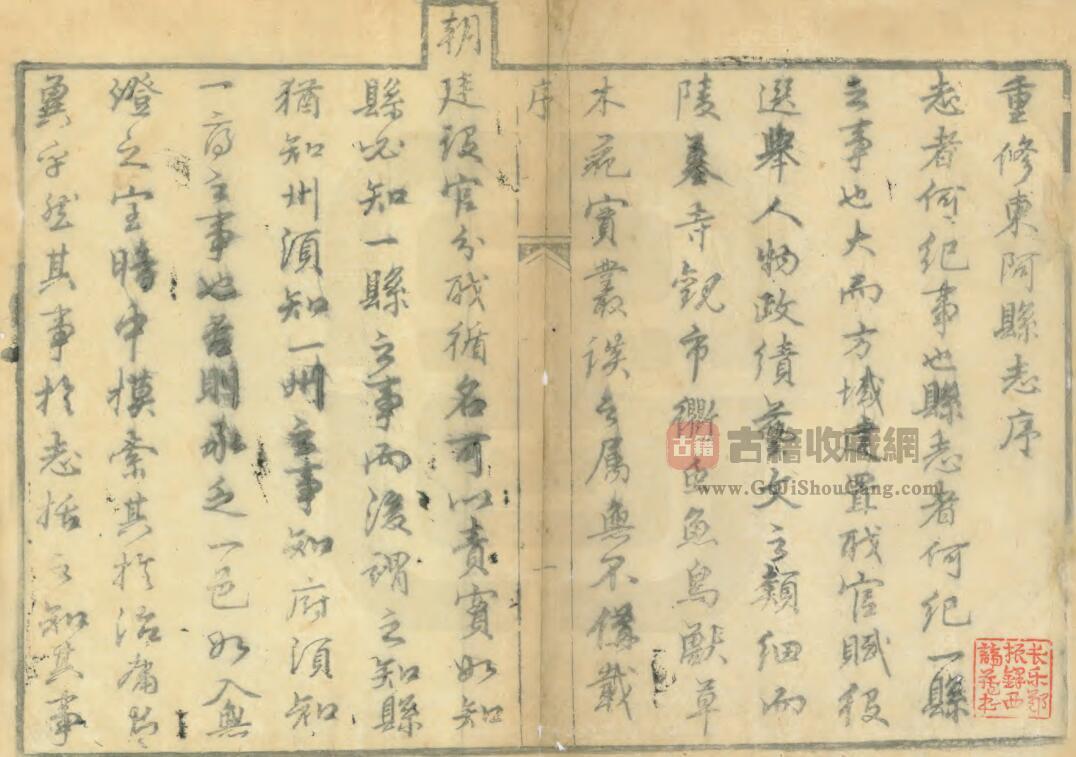 重修東阿縣志序
志者何紀事也縣志者何紀一縣
之事也大而方域建置職官賦役
選舉人物政績藝文之類細而
陵墓寺觀市衢虫魚鳥獸草
木花實叢談之屬無不備載
序
一
朝
廷設官分職循名可以責實如知
縣必知一縣之事而後謂之知縣
猶知州須知一州之事知府須知
一府之事也否則承乏一邑如入無
燈之室暗中摸索其於治庸
冀乎然其事於志括之知其事
长乐郑
振鐸西
諦藏书
古籍
古籍收藏網
www.GuJiShouCang.com